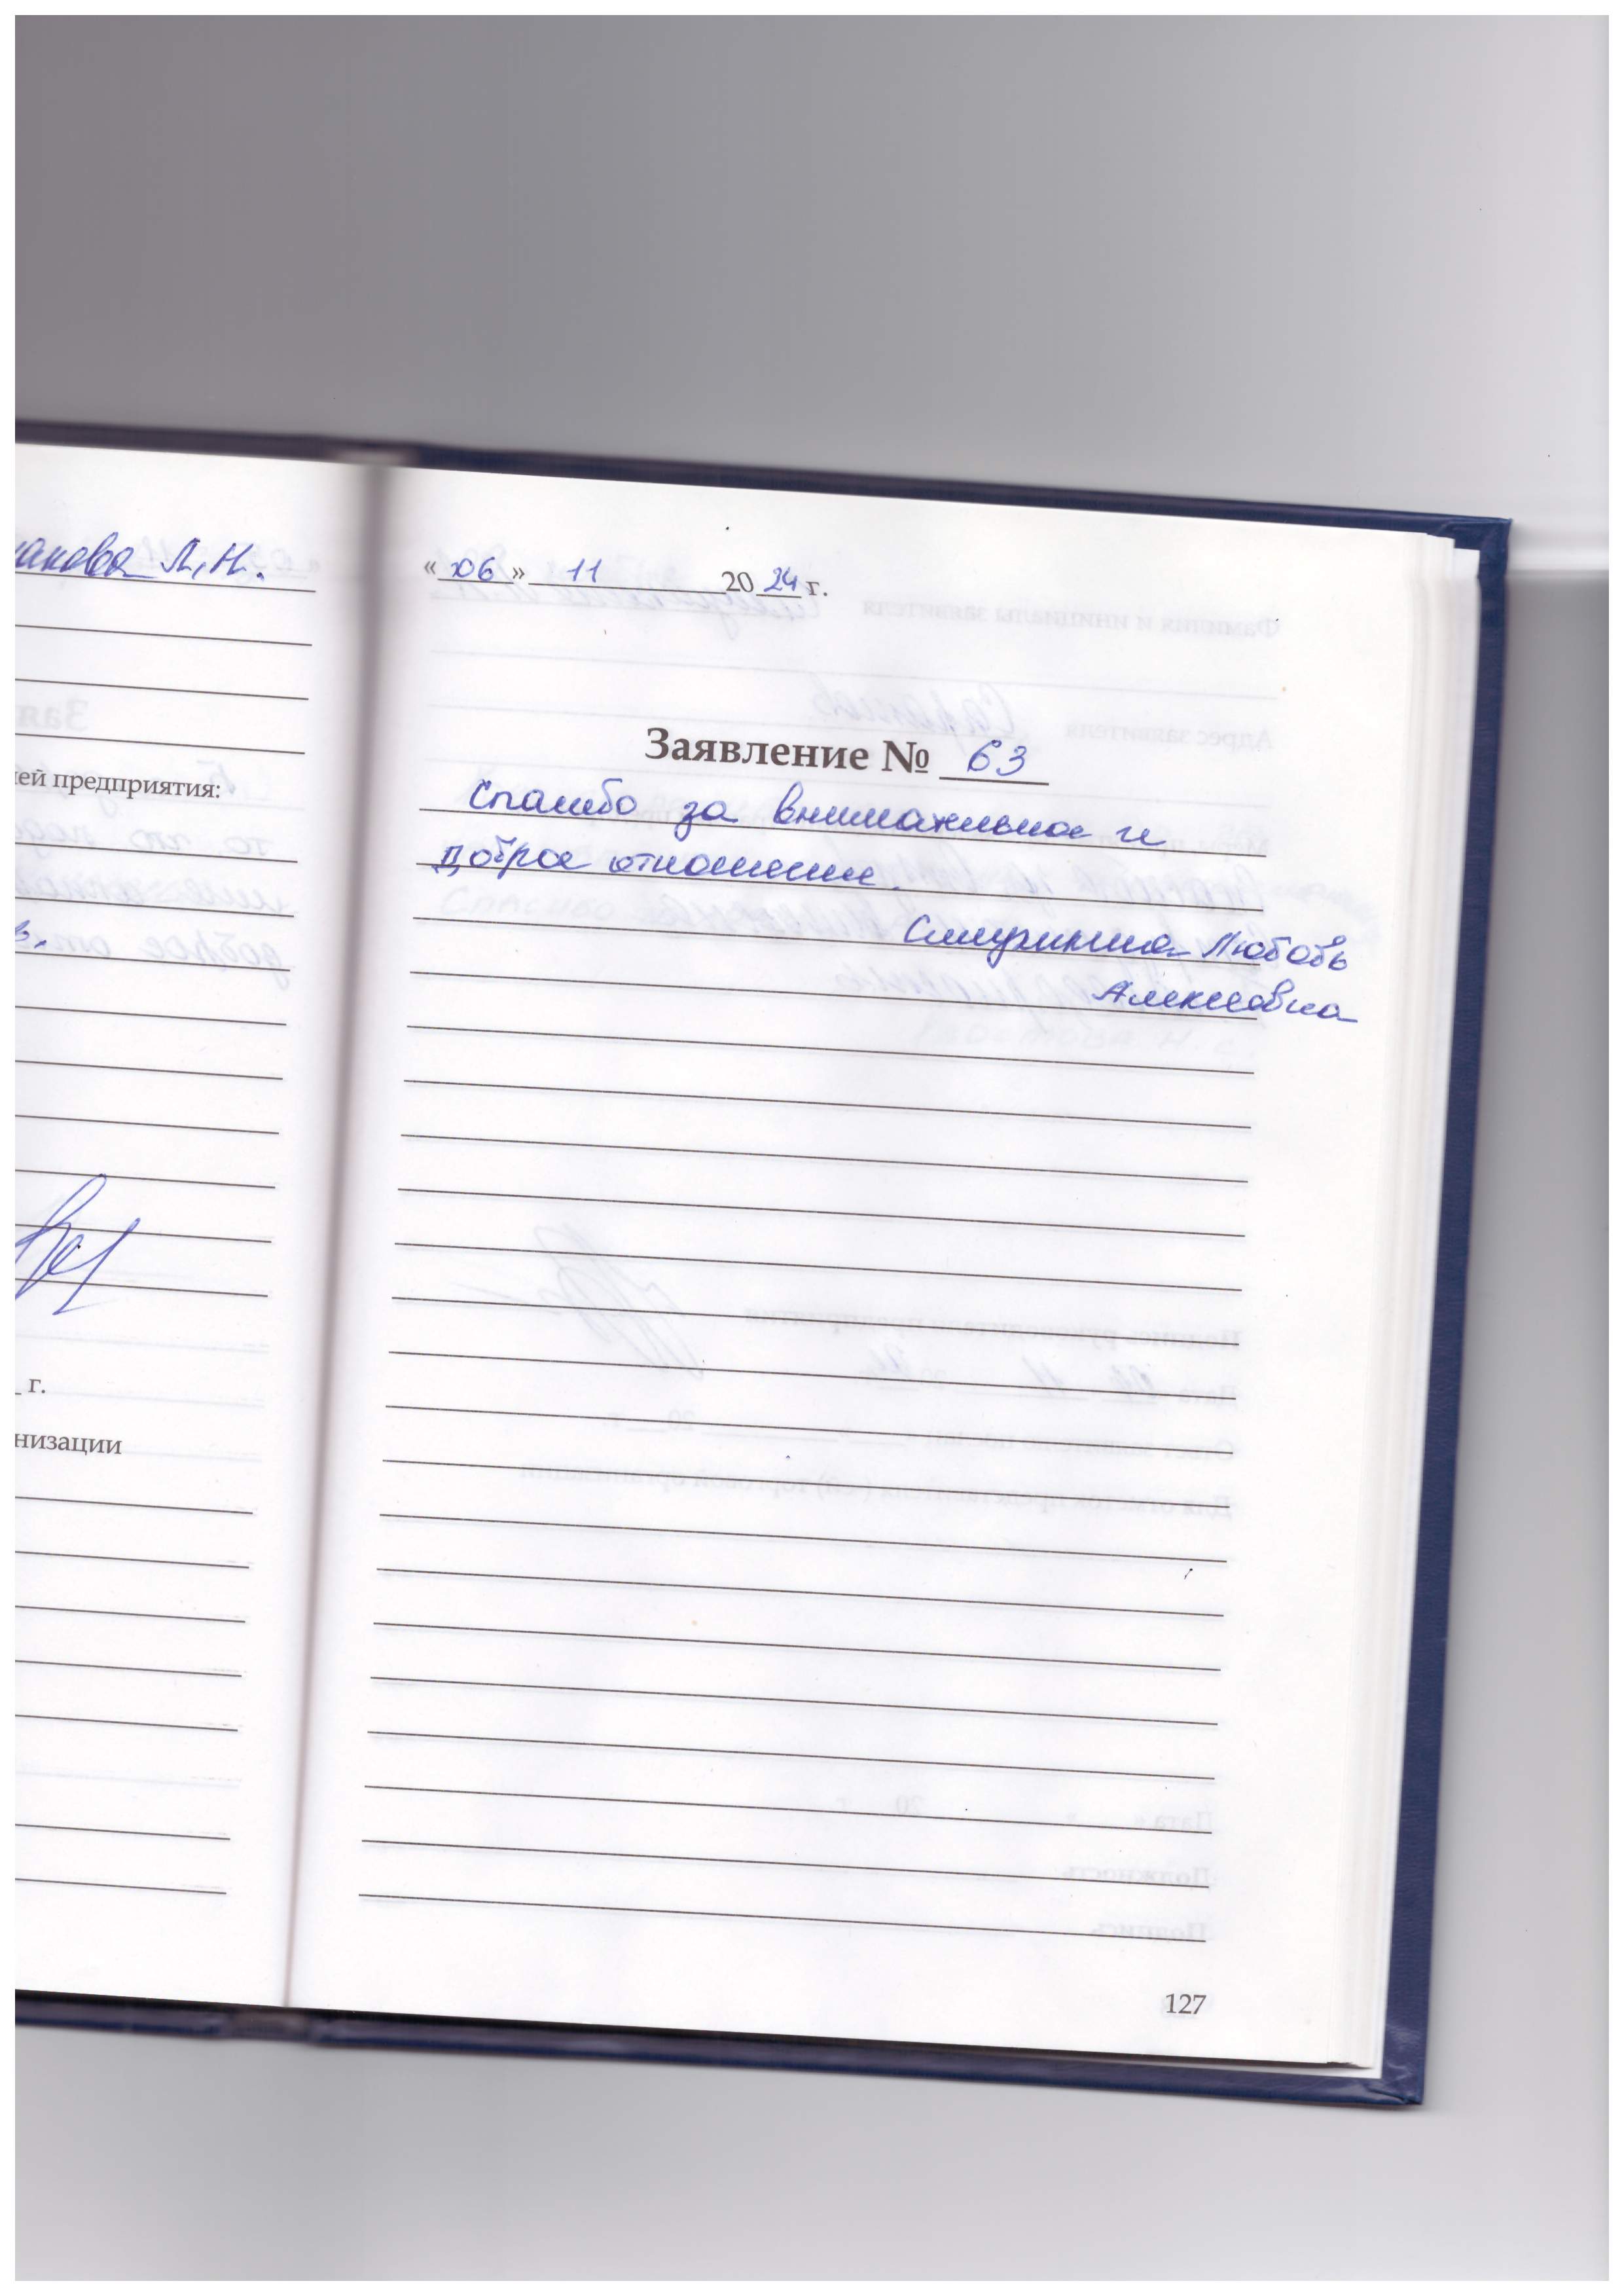 Л.Н.
ей предприятия:
г.
низации
«06» 11 2024 г.
Заявление № 63
Спасибо за внимательное и
доброе отношение.
Любовь
Алексеевна
127